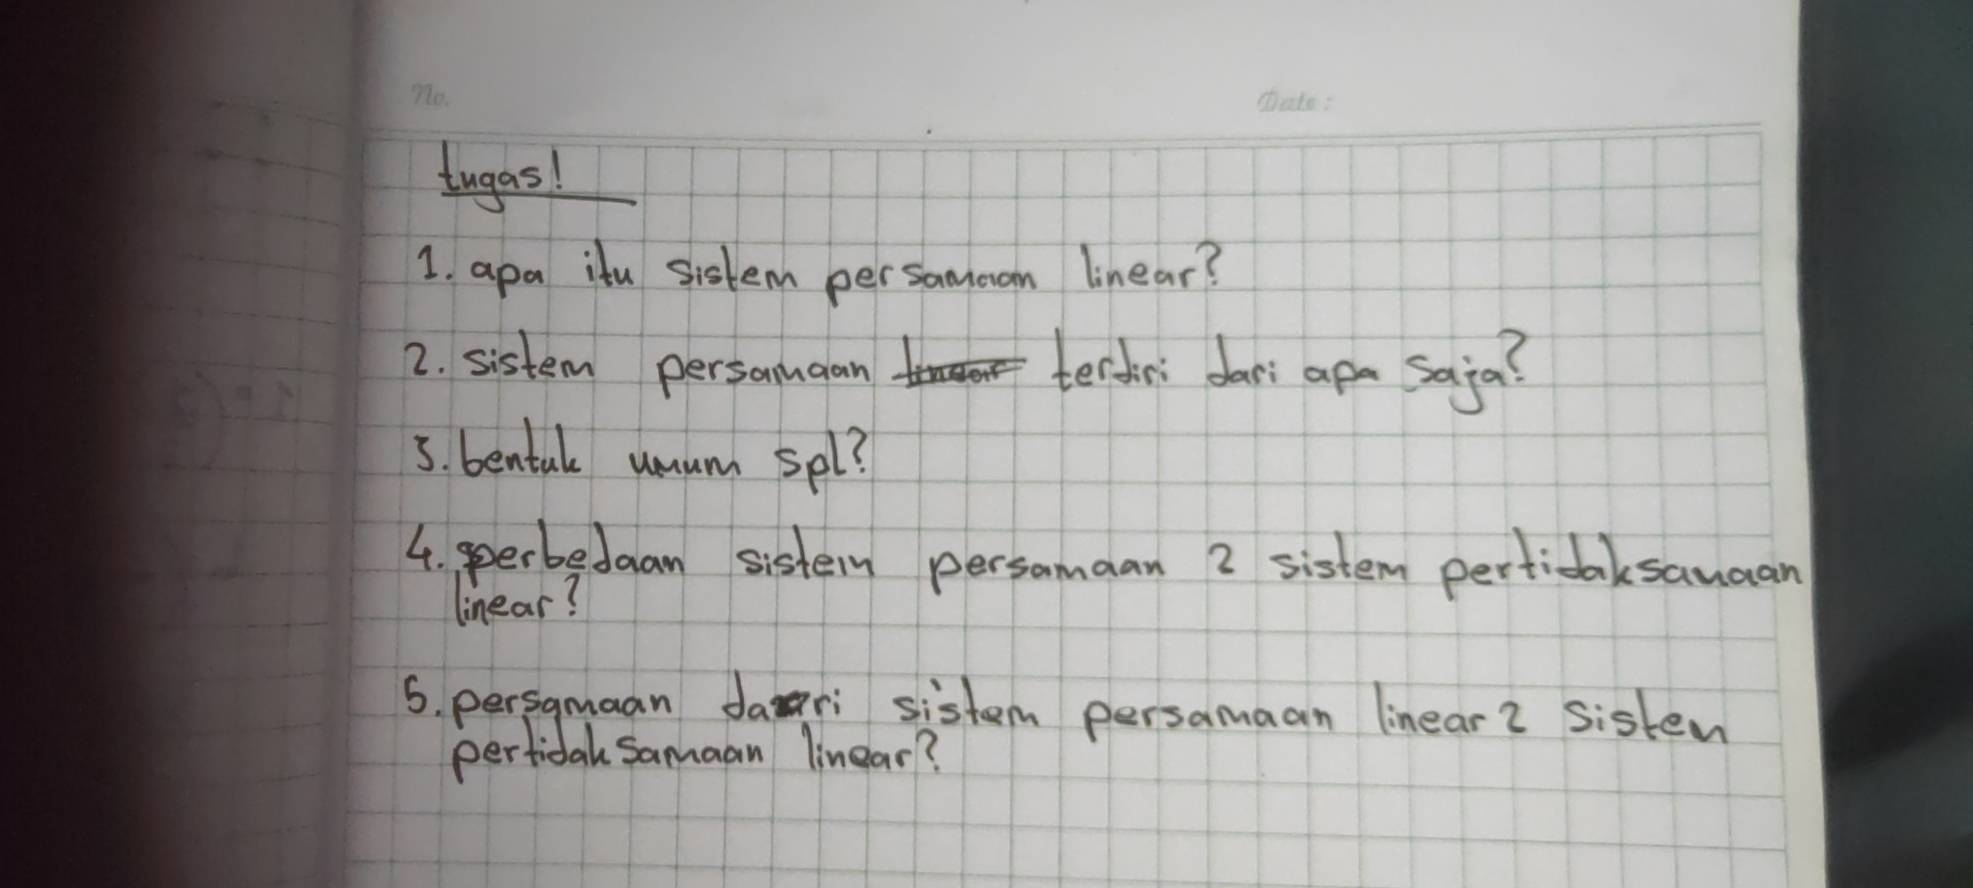 No.
Date:
tugas!
1. apa itu sistem persamaan linear?
2. sistem persamaan terdiri dari apa saja?
3. bentuk umum spl?
4. perbedaan sistem persamaan 2 sistem pertidaksamaan
linear?
5. persamaan dari sistem persamaan linear 2 sistem
pertidaksamaan linear?